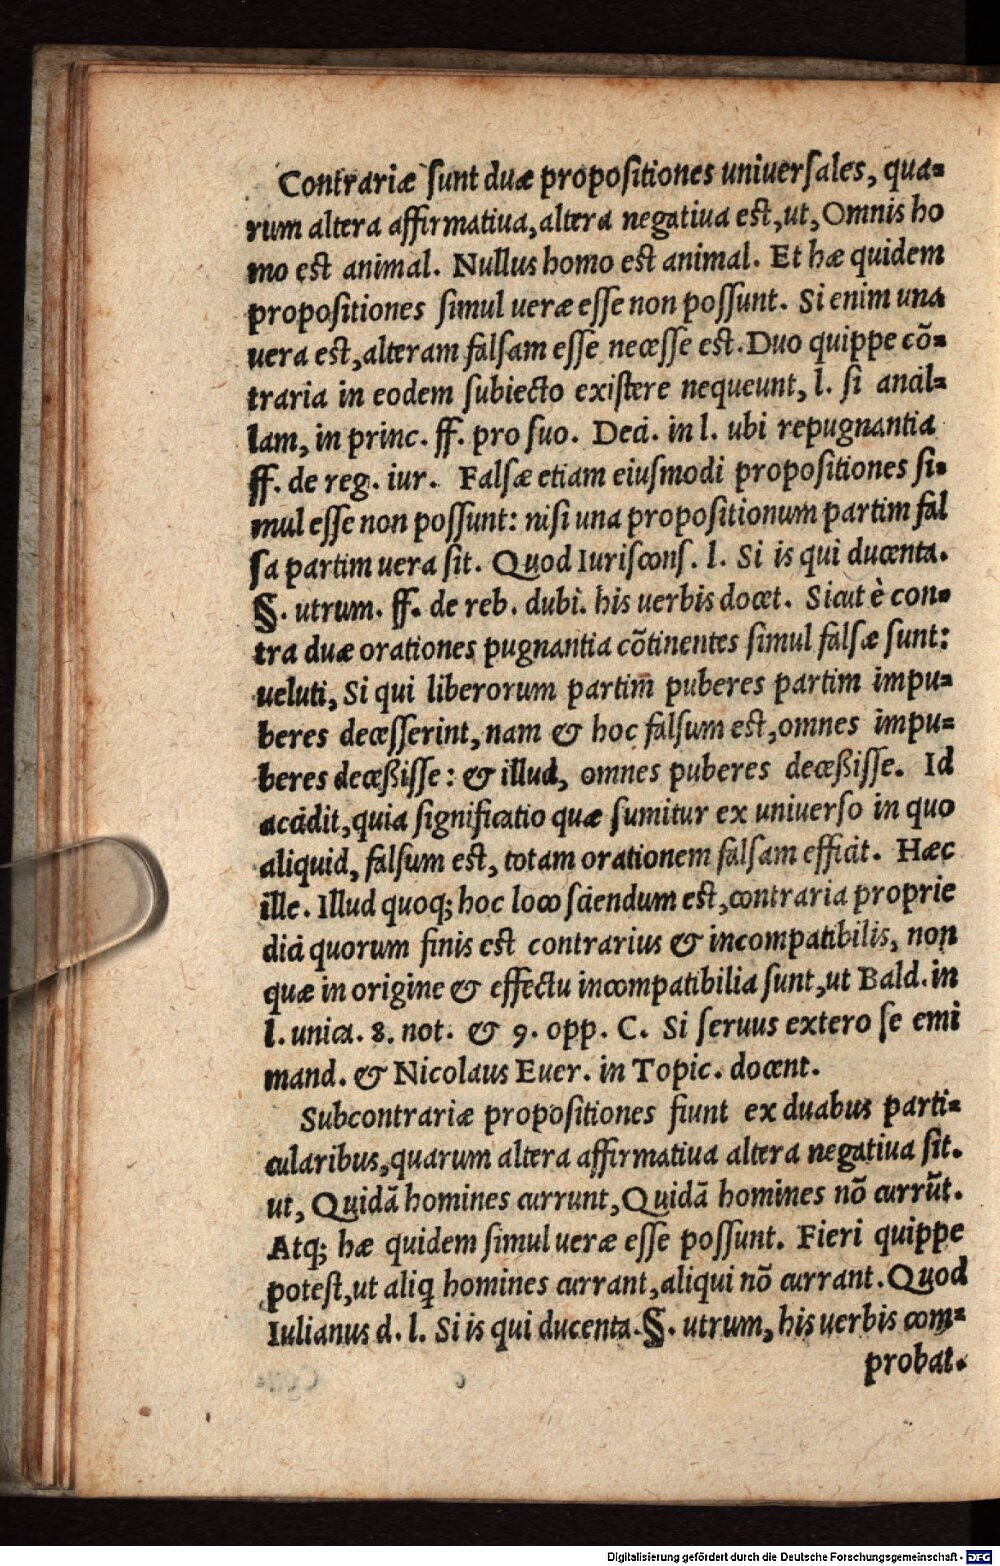 Contrariæ sunt duæ propositiones uniuersales, qua-
rum altera affirmatiua, altera negatiua est, ut, Omnis ho
mo est animal. Nullus homo est animal. Et hæ quidem
propositiones simul ueræ esse non possunt. Si enim una
uera est, alteram falsam esse necesse est. Duo quippe cõ-
traria in eodem subiecto existere nequeunt, l. si ancil-
lam, in princ. ff. pro suo. Deci. in l. ubi repugnantia
ff. de reg. iur. Falsæ etiam eiusmodi propositiones si-
mul esse non possunt: nisi una propositionum partim fal
sa partim uera sit. Quod Iuriscons. l. Si is qui ducenta.
§. utrum. ff. de reb. dubi. his uerbis docet. Sicut è con-
tra duæ orationes pugnantia cõtinentes simul falsæ sunt:
ueluti, Si qui liberorum partim puberes partim impu-
beres decesserint, nam & hoc falsum est, omnes impu-
beres deceßisse: & illud, omnes puberes deceßisse. Id
accidit, quia significatio quæ sumitur ex uniuerso in quo
aliquid, falsum est, totam orationem falsam efficit. Hæc
ille. Illud quoq; hoc loco sciendum est, contraria proprie
dici quorum finis est contrarius & incompatibilis, non
quæ in origine & effectu incompatibilia sunt, ut Bald. in
l. unica. 8. not. & 9. opp. C. Si seruus extero se emi
mand. & Nicolaus Euer. in Topic. docent.
Subcontrariæ propositiones fiunt ex duabus parti-
cularibus, quarum altera affirmatiua altera negatiua sit.
ut, Quidã homines currunt, Quidã homines nõ currũt.
Atq; hæ quidem simul ueræ esse possunt. Fieri quippe
potest, ut aliq homines currant, aliqui nõ currant. Quod
Iulianus d. l. Si is qui ducenta. §. utrum, his uerbis com-
probat.
Digitalisierung gefördert durch die Deutsche Forschungsgemeinschaft - DFG